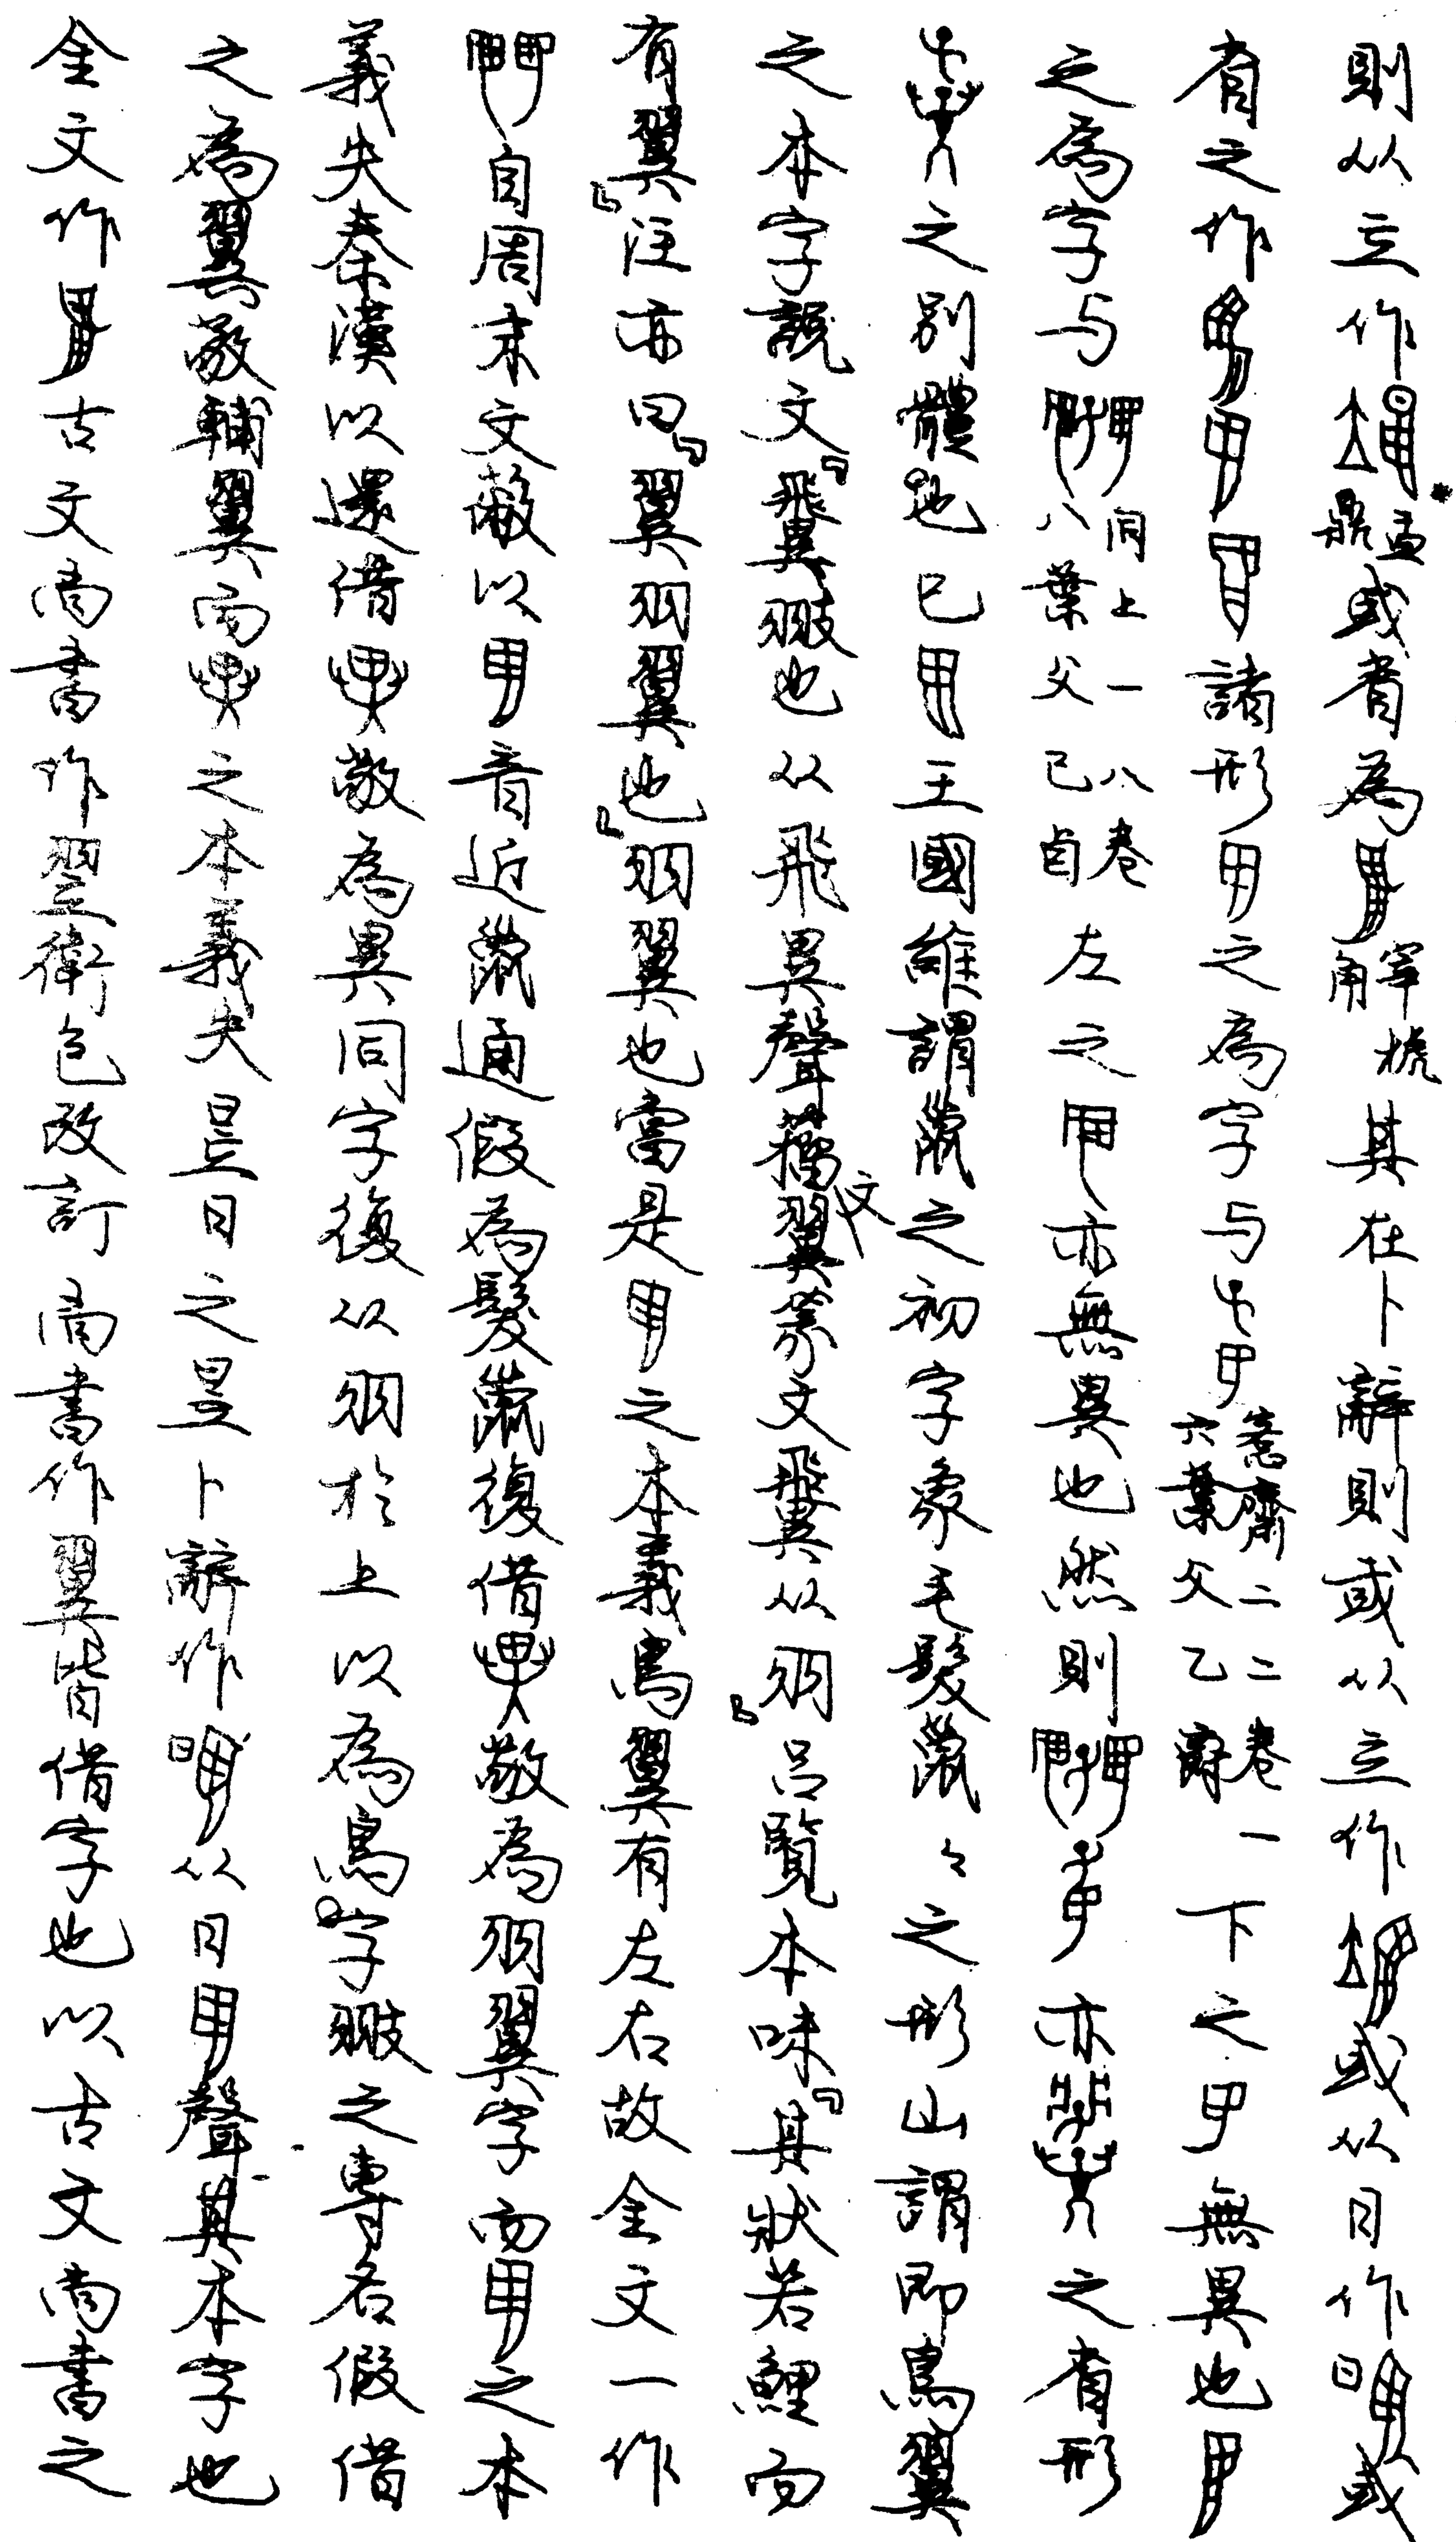 則从立作鼎盂或者為宰椃角其在卜辭則或从立作或从日作或
者之作諸形甲之為字与愙齋二二卷一六葉父乙爵下之無異也
之為字与同上一八卷八葉父己卣左之亦無異也然則亦之者形
之別體也已王國維謂鬣之初字象毛髮鬣々之形山謂即鳥翼
之本字說文『𩙺翄也从飛異聲籀文翼篆文𩙺从羽』呂覽本味『其狀若鯉而
有翼』注亦曰『翼羽翼也』羽翼也當是之本義鳥翼有左右故金文一作
自周末文敝以音近鬣通假為髮鬣復借敬為羽翼字而之本
義失秦漢以還借敬為異同字復从羽於上以為鳥字翄之專名假借
之為翼敬輔翼而之本義失昱日之昱卜辭作从日聲其本字也
金文作古文尚書作翌衛包改訂尚書作翼皆借字也以古文尚書之